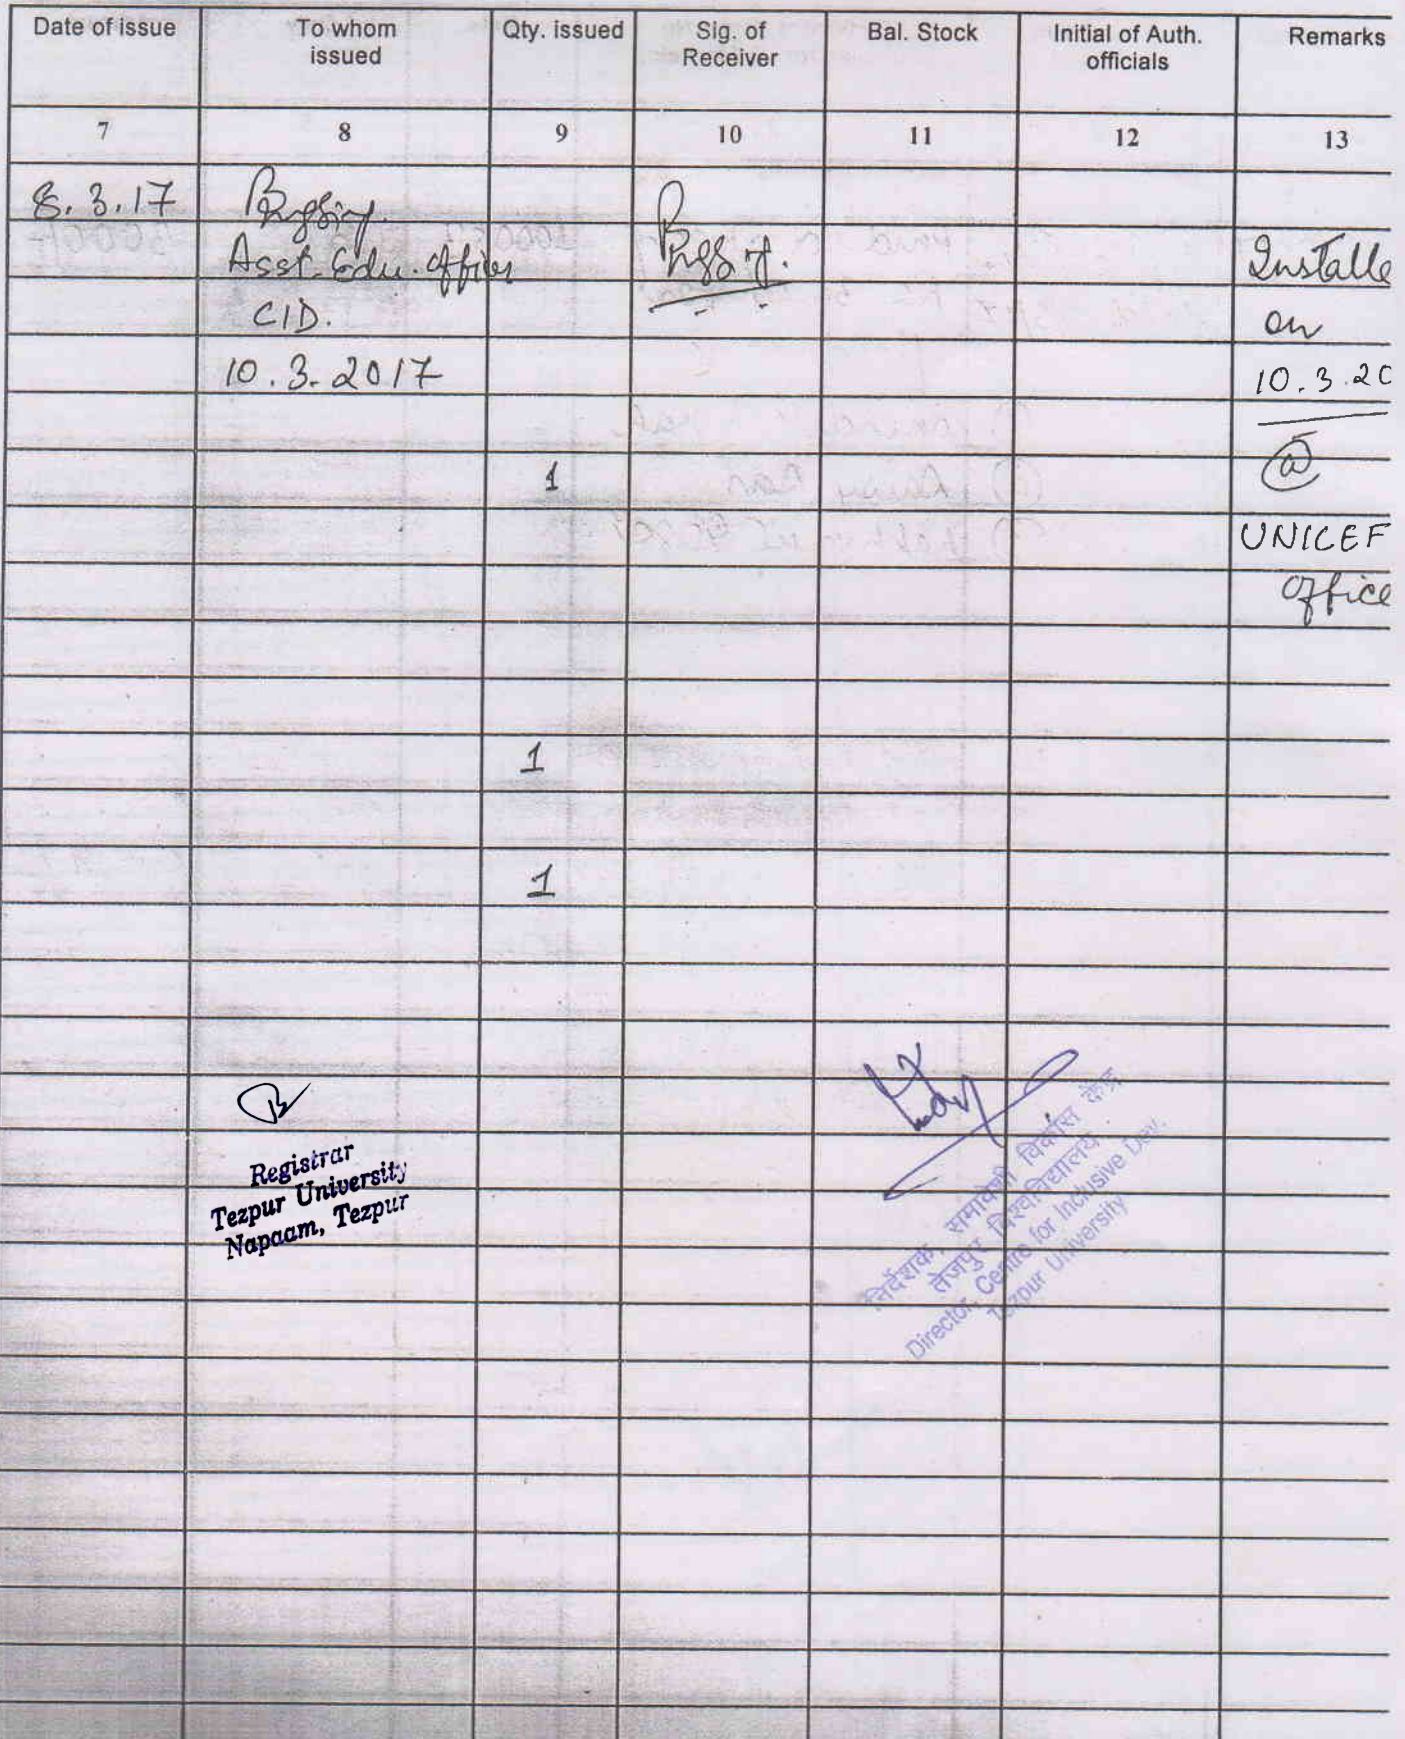 Date of issue To whom issued Qty. issued Sig. of Receiver Bal. Stock Initial of Auth. officials Remarks
7 8 9 10 11 12 13
8.3.17
Asst. Edu. Officer Installe
CID. on
10.3.2017 10.3.20
1 @
UNICEF
Office
1
1
Registrar
Tezpur University
Napaam, Tezpur
निदेशक, समावेशी विकास केन्द्र
तेजपुर विश्वविद्यालय
Director, Centre for Inclusive Dev.
Tezpur University